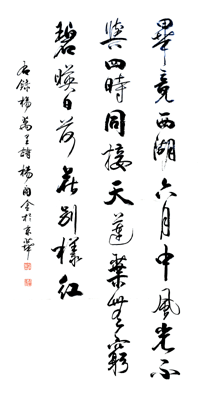 畢竟西湖六月中風光不
與四時同接天蓮葉無窮
碧暎日荷花別樣紅
右錄楊萬里詩楊於京華